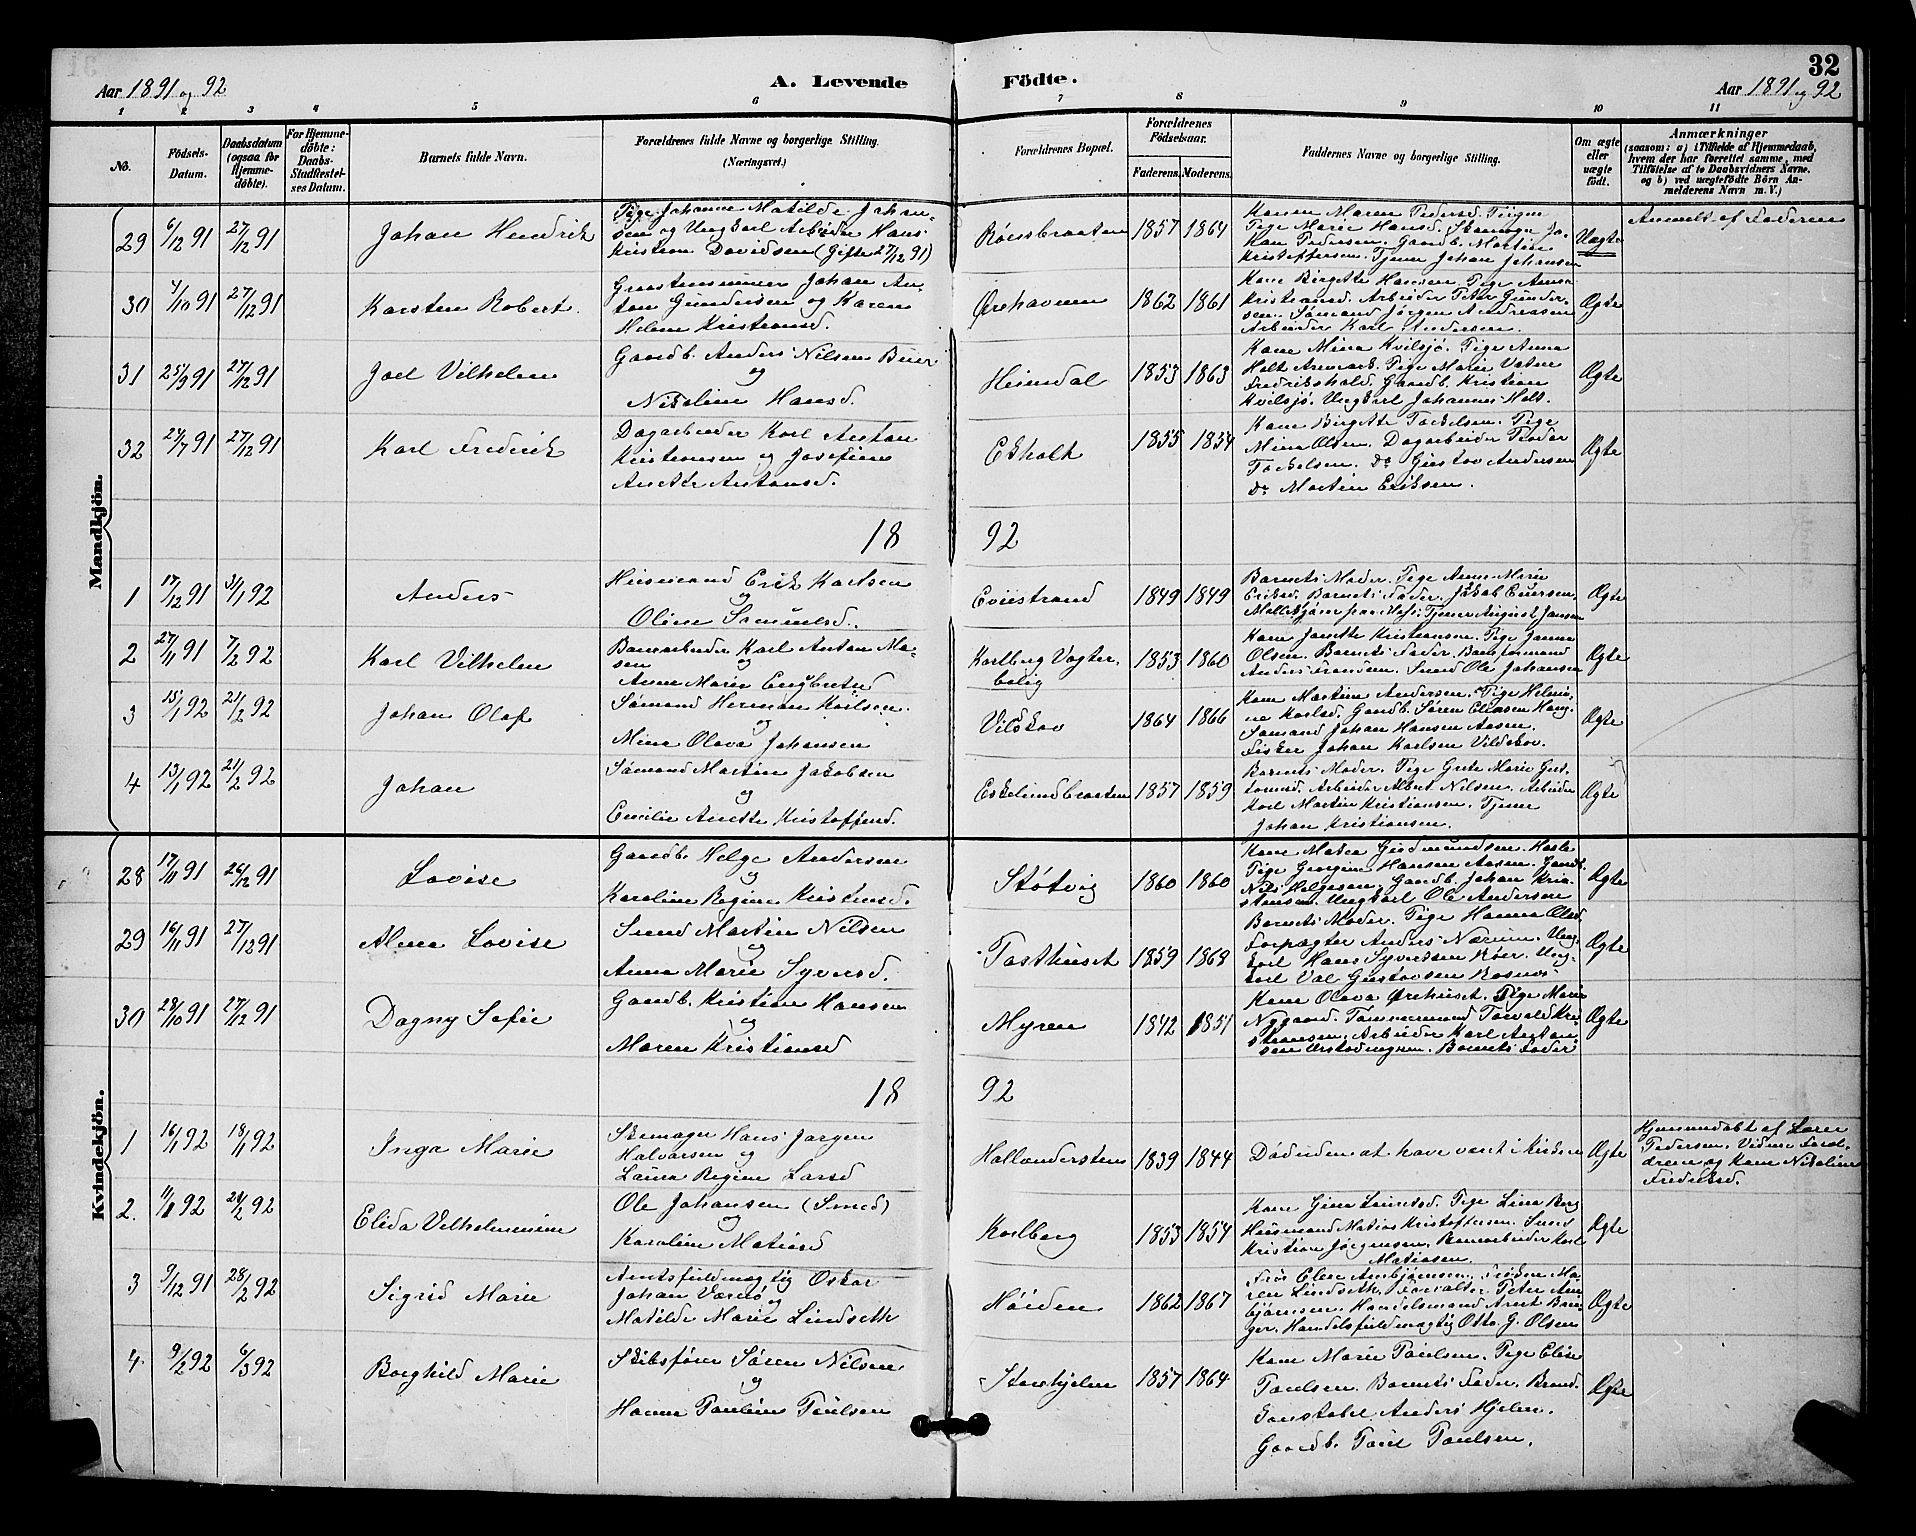 32
Aar 1891 og 92
A. Levende
Födte.
Aar 1891 og 92
1 2 3 4 5 6 7 8 9 10 11
No.
Födsels-
Datum.
Daabsdatum
(ogsaa for
Hjemme-
döbte).
For Hjemme-
döbte:
Daabs-
Stadfæstel-
ses Datum.
Barnets fulde Navn.
Forældrenes fulde Navne og borgerlige Stilling.
(Næringsvei.)
Forældrenes Bopæl.
Forældrenes
Födselsaar.
Faderens. Moderens.
Faddernes Navne og borgerlige Stilling.
Om ægte
eller
uægte
födt.
Anmærkninger
(saasom: a) i Tilfælde af Hjemmedaab,
hvem der har forrettet samme, med
Tilföielse af to Daabsvidners Navne,
og b) ved uægtefödte Börn An-
melderens Navn m. V.)
Mandkjön.
29 6/12 91 27/12 91 Johan Hendrik
Pige Johanne Matilde Johan-
sen og Ungkarl Arbeider Hans
Kristian Davidsen (Gifte 27/12 91)
1857 1864
Kone Maren Pedersd.
Pige Marie Hansd. Skomager Jo-
han Pedersen. Gaardb. Martin
Kristoffersen. Tjener Johan Johansen
Uægte
Anmeldt af Faderen
30 4/10 91 27/12 91 Karsten Robert.
Johan An-
ton Gundersen og Karen
Helene Kristiansd.
Ørehavnen 1862 1861
Kone Birgitte Hansen. Pige Anna
Kristiansd. Arbeider Peter Gunder-
sen. Sømand Jørgen Andreasen
Arbeider Karl Andersen.
Ægte
31 25/9 91 27/12 91 Joel Vilhelm
Gaardb. Anders Nilsen Buer
og
Nikoline Hansd.
Heimdal 1853 1863
Kone Mina Kvilsjø. Pige Anna
Holt Aremark. Pige Marie Vatne
Fredrikshald. Gaardb. Kristian
Kvilsjø. Ungkarl Johannes Holt.
Ægte
32 24/7 91 27/12 91 Karl Fredrik
Dagarbeider Karl Anton
Kristiansen og Josefine
Anette Antonsd.
Ekholt 1855 1854
Kone Birgitte Torkelsen. Pige
Mina Olsen. Dagarbeider Peder
Torkelsen. Do Gustav Andersen
Do Martin Eriksen.
Ægte
18 92
1 17/12 91 31/1 92 Anders
Husmand Erik Karlsen
og
Oline Samuelsd.
Eviestrand 1849 1849
Barnets Moder. Pige Anne Marie
Eriksd. Barnets Fader. Jakob Eversen
Tjener August Jansen
Ægte
2 27/11 91 7/2 92 Karl Vilhelm
Banearbeider Karl Anton Ma-
sen
og
Anne Marie Engbretsd
Karlberg Vogter-
bolig
1853 1860
Kone Janette Kristiansen. Pige Janna
Olsen. Barnets Fader. Baneformand
Anders Brandem. Smed Ole Johansen
Ægte
3 15/1 92 21/2 92 Johan Olaf
Sømand Herman Karlsen.
og
Mina Olava Johansen
Vilskov 1864 1866
Kone Martine Andersen. Pige Helmi-
ne Karlsd. Gaardb. Søren Eliasen Haug.
Sømand Johan Hansen Aasen.
Fisker Johan Karlsen Vildskov.
Ægte
4 13/1 92 21/2 92 Johan
Sømand Martin Jakobsen
og
Cecilie Anette Kristoffersd.
Eskelundbraaten 1857 1859
Barnets Moder. Pige Grete Marie Gus-
tavsd. Arbeider Albert Nilsen. Arbeider
Karl Martin Kristiansen. Tjener
Johan Kristiansen.
Ægte
Kvindekjön.
28 17/11 91 26/12 91 Lovise
Gaardb. Helge Andersen
og
Karoline Regine Kristensd.
Støtvig 1860 1860
Kone Matea Gudmundsen.
Pige Georgine Hansen Aasen. Gaardb.
Nils Helgesen. Gaardb. Johan Kris-
tensen. Ungkarl Ole Andersen
Ægte
29 16/11 91 27/12 91 Alma Lovise
Smed Martin Nilsen
og
Anna Marie Syversd.
Tasthuset 1859 1868
Barnets Moder. Pige Hanna Olsd.
Forpagter Anders Nærum. Ung-
karl Hans Syversen Röer. Ung-
karl Val Gustavsen
Ægte
30 28/10 91 27/12 91 Dagny Sofie
Gaardb. Kristian Hansen
og
Maren Kristiansd
Myren 1842 1851
Kone Olava Ørehuset. Pige Marie
Nygaard. Tømmermand Torvald Kri-
stiansen. Arbeider Karl Anton-
sen Barnets Fader
Ægte
18 92
1 16/1 92 18/1 92 Inga Marie
Skomager Hans Jørgen
Halvorsen og
Laura Regine Larsd
Hollendersten 1839 1844
Död uden at have været i Kirken
Ægte
Hjemmedøbt af Lærer
Pedersen. Vidner Foræl-
drene og Kone Nikoline
Fredriksd.
2. 11/1 92 21/2 92 Elida Vilhelmine
Ole Johansen (Smed)
og
Karoline Matiasd
Karlberg 1853 1854
Kone Gina Lunds. Pige Lina Berg
Husmand Matias Kristoffersen. Smed
Kristian Jörgensen. Banearbeider Karl
Matiasen.
Ægte
3 9/12 91 28/2 92 Sigrid Marie
Amtsfuldmægtig Oskar
Johan Værnø og
Matilde Marie Lindseth
Höiden 1862 1867
Fru Elen Arnbjørnsen. Frøken Ma-
ren Lindseth. Peter Arn-
bjørnsen. Handelsmand Arnt Brin-
ger. Handelsfuldmægtig Otto G. Olsen
Ægte
4. 9/2 92 6/3 92 Borghild Marie
Skibsfører Søren Nilsen
og
Hanna Pauline Paulsen
Storehjelm 1857 1864
Kone Marie Paulsen. Pige Elise
Paulsen. Barnets Fader. Brand-
konstabel Anders Hjelm.
Gaardb. Paul Paulsen.
Ægte